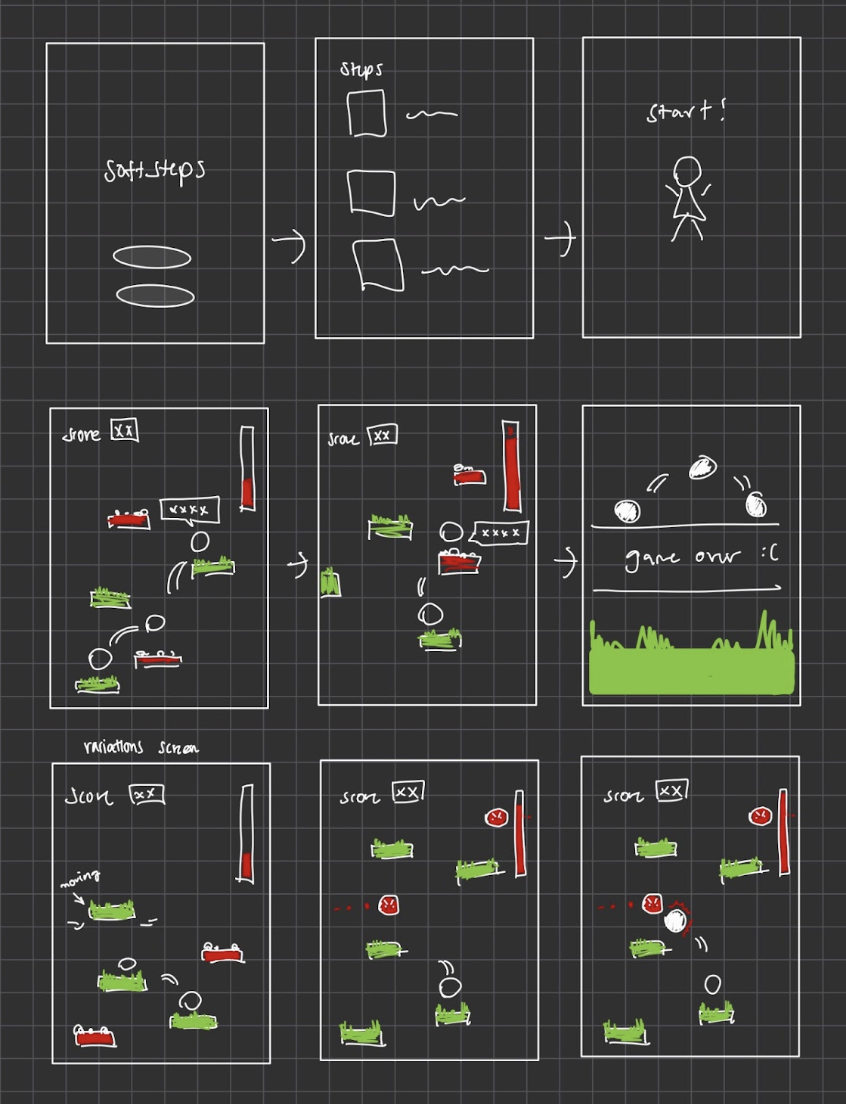 softsteps
steps
start!
score xx
xxxx
score xx
xxxx
game over :C
variations screen
score xx
moving
score xx
score xx